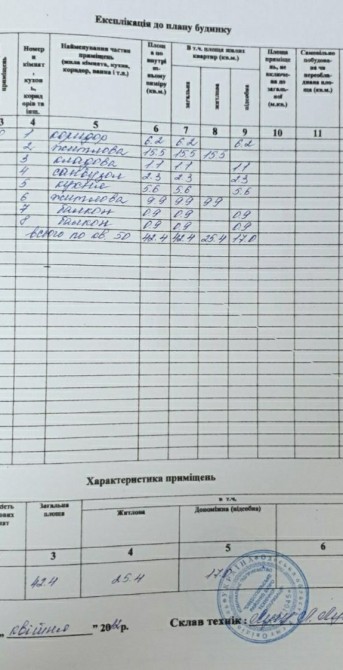 Експлікація до плану будинку
приміщень
Номер
и
кімнат
,
кухон
ь,
корид
орів та
інш.
Найменування частин
приміщень
(жила кімната, кухня,
коридор, ванна і т.п.)
Площ
а по
внутрі
ш-
ньому
виміру
(кв.м.)
В т.ч. площа жилих
квартир (кв.м.)
загальна
житлова
підсобна
Площа
приміщ
ень, не
включе-
на до
загаль-
ної
(м.кв.)
Самовільно
побудова-
на чи
переобла-
днана пло-
ща (кв.м.)
3 4 5 6 7 8 9 10 11
1 коридор 6.2 6.2 6.2
2 житлова 15.5 15.5 15.5
3 кладова 1.1 1.1 1.1
4 санвузол 2.3 2.3 2.3
5 кухня 5.6 5.6 5.6
6 житлова 9.9 9.9 9.9
7 балкон 0.9 0.9 0.9
8 балкон 0.9 0.9 0.9
всього по кв. 50 42.4 42.4 25.4 17.0
Характеристика приміщень
Загальна
площа
в т.ч.
Житлова
Допоміжна (підсобна)
3 4 5 6
42.4 25.4 17.0
„ квітня " 20 р.
Склав технік :